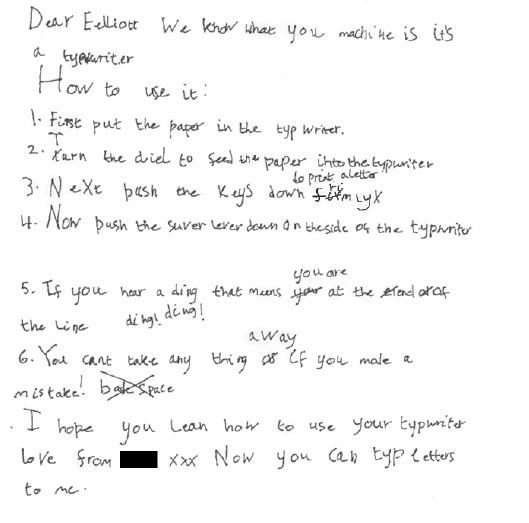 Dear Eelliott We know what you machine is it's
a typewriter
How to use it:
1. First put the paper in the typ writer.
2. Turn the diel to feed the paper into the typwriter
to print a letter
3. Next push the keys down
4. Now push the suver lever down on the side of the typwriter
you are
5. If you hear a ding that means at the end of
the line ding! ding!
away
6. You cant take any thing if you make a
mistake! back space
I hope you lean how to use your typwriter
love from xxx Now you can typ letters
to me.